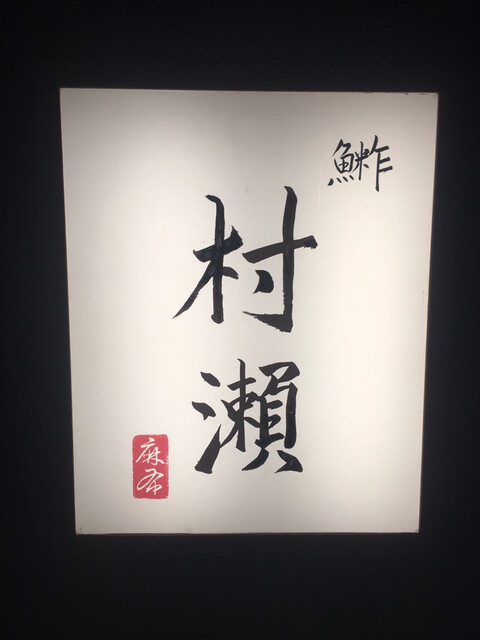 鮓
村瀬
麻布